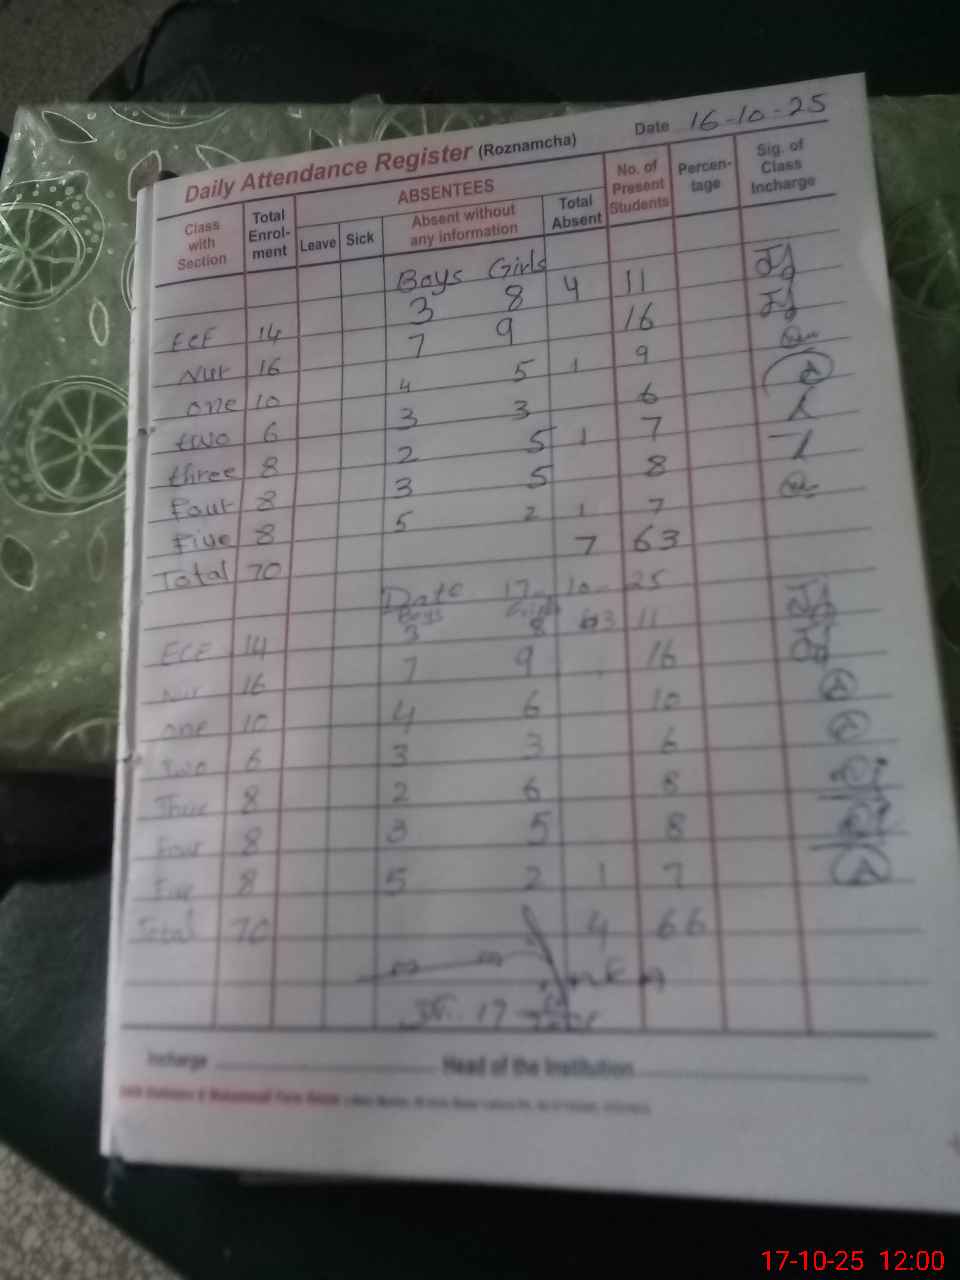 Daily Attendance Register (Roznamcha) Date 16-10-25
Class with Section Total Enrol-ment ABSENTEES Leave Sick Absent without any information Total Absent No. of Present Students Percen-tage Sig. of Class Incharge
Boys Girls
ECE 14 3 8 4 11
Nur 16 7 9 16
one 10 4 5 1 9
two 6 3 3 6
three 8 2 5 1 7
Four 8 3 5 8
Five 8 5 2 1 7
Total 70 7 63
Date 17-10-25
Boys Girls
ECE 14 3 8 3 11
Nur 16 7 9 16
one 10 4 6 10
Two 6 3 3 6
Three 8 2 6 8
Four 8 3 5 8
Five 8 5 2 1 7
Total 70 4 66
17
Incharge Head of the Institution
17-10-25 12:00